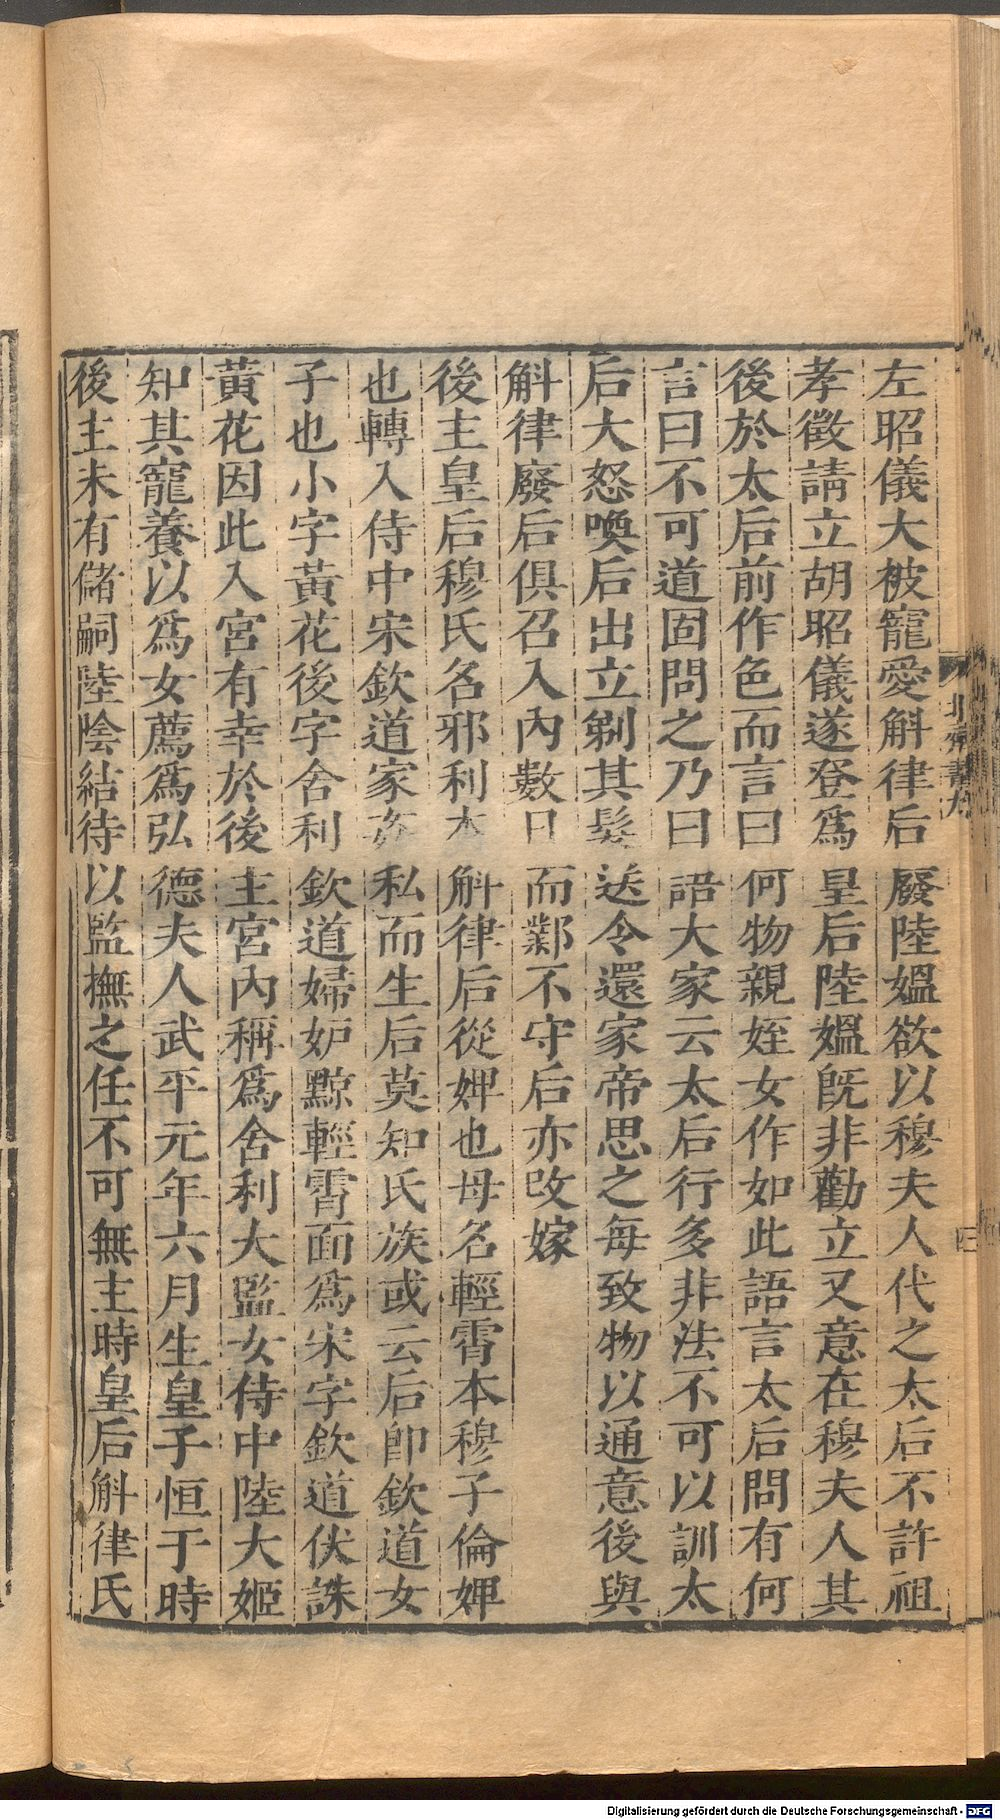 左昭儀大被寵愛斛律后廢陸媼欲以穆夫人代之太后不許祖
孝徵請立胡昭儀遂登爲皇后陸媼既非勸立又意在穆夫人其
後於太后前作色而言曰何物親姪女作如此語言太后問有何
言曰不可道固問之乃曰語大家云太后行多非法不可以訓太
后大怒喚后出立剃其髮送令還家帝思之每致物以通意後與
斛律廢后俱召入內數日而鄴不守后亦改嫁
後主皇后穆氏名邪利本斛律后從婢也母名輕霄本穆子倫婢
也轉入侍中宋欽道家姦私而生后莫知氏族或云后卽欽道女
子也小字黃花後字舍利欽道婦妒黥輕霄面爲宋字欽道伏誅
黃花因此入宮有幸於後主宮內稱爲舍利大監女侍中陸大姬
知其寵養以爲女薦爲弘德夫人武平元年六月生皇子恒于時
後主未有儲嗣陸陰結待以監撫之任不可無主時皇后斛律氏
北齊書九
四
Digitalisierung gefördert durch die Deutsche Forschungsgemeinschaft - DFG